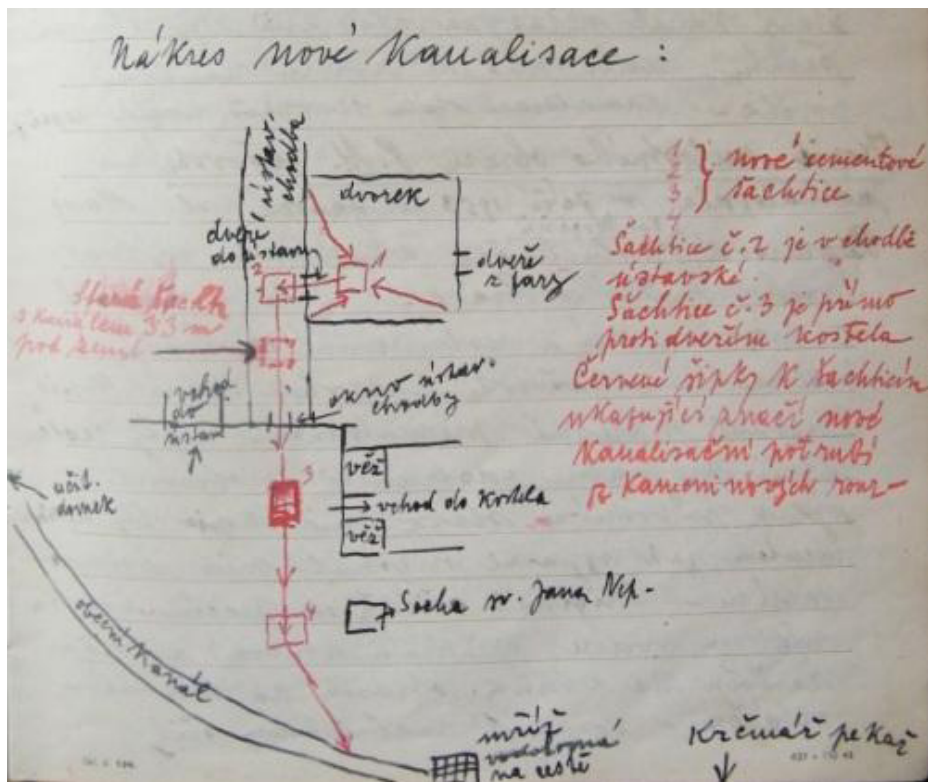 Nákres nové Kanalisace :
ústav.
chodba
dvorek
dveře
do ústavu
dveře
z fary
1
2
1
2
3
4
} nové cementové
šachtice
Šachtice č. 2 je v chodbě
ústavské.
Šachtice č. 3 je přímo
proti dveřím kostela
Červené šipky k šachticím
ukazující značí nové
Kanalisační potrubí
z Kameninových rour-
Stará
s kanálem 3.3 m
pod zemí
vchod
do
ústavu
okno ústav.
chodby
učit.
domek
3
věž
vchod do Kostela
věž
Socha sv. Jana Nep.
4
obecní Kanál
mříž
na cestě
Krčmář pekař